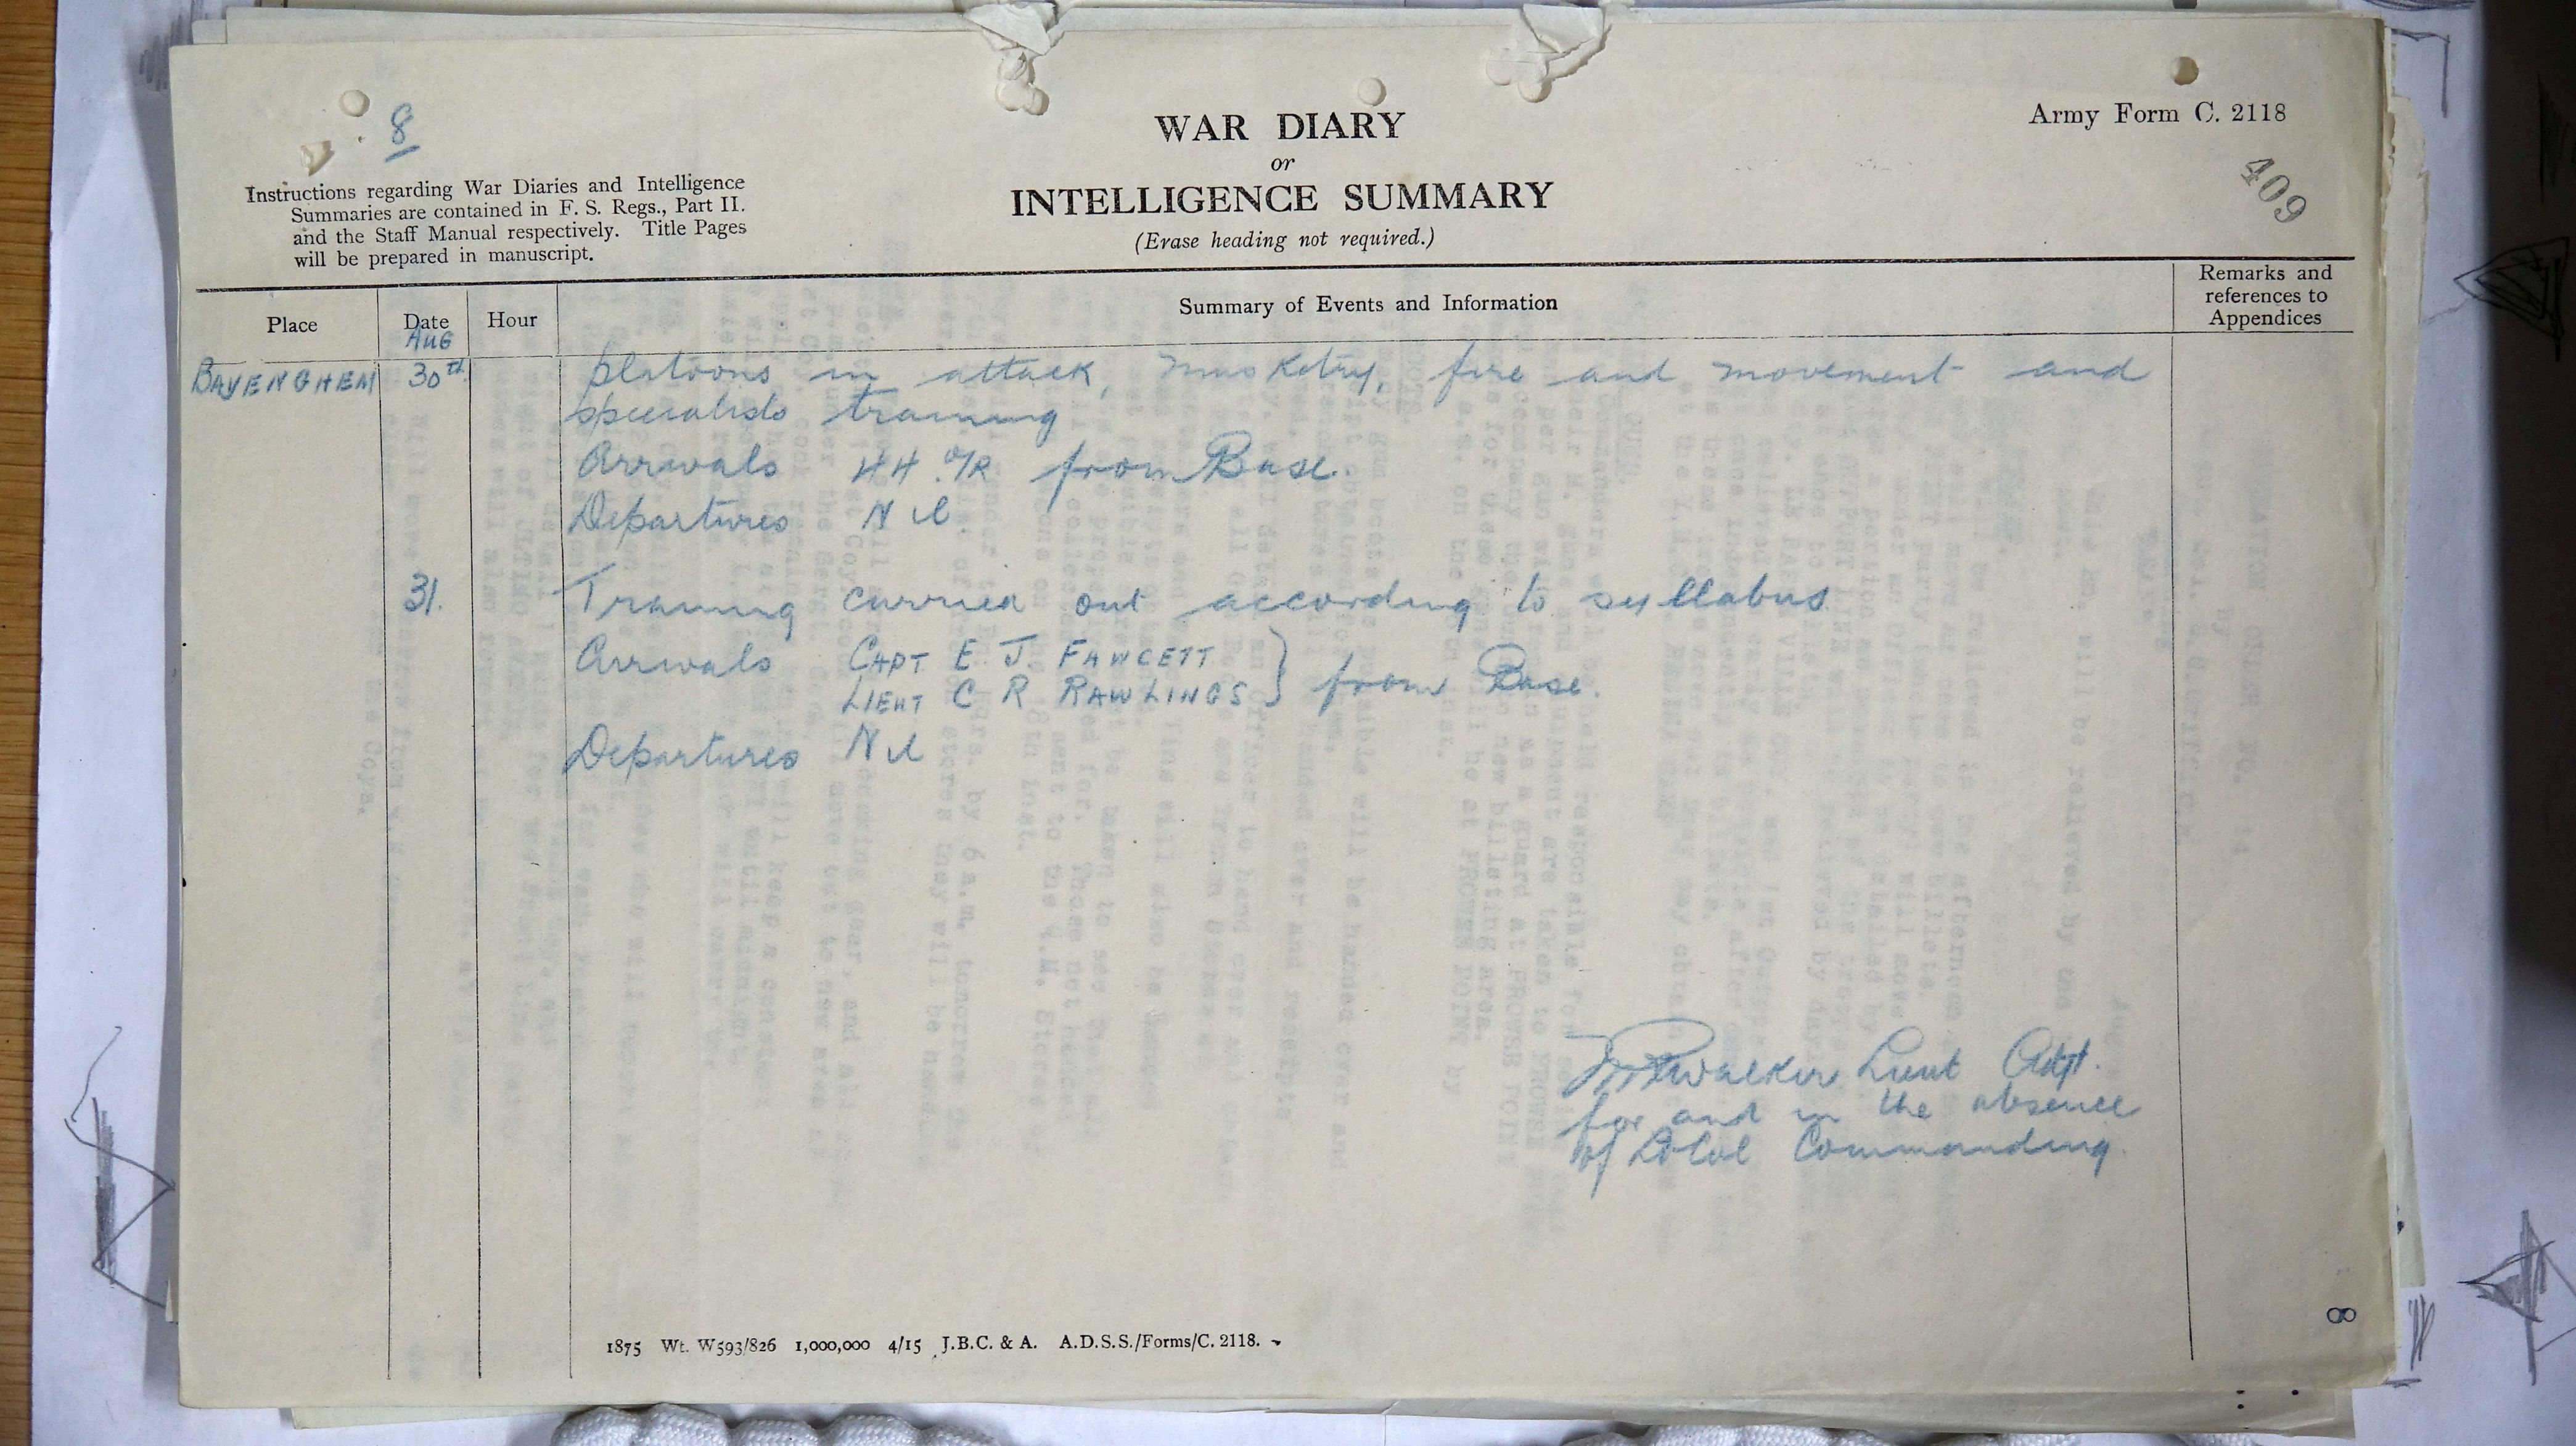 8
WAR DIARY
or
INTELLIGENCE SUMMARY
(Erase heading not required.)
Army Form C. 2118
409
Instructions regarding War Diaries and Intelligence
Summaries are contained in F. S. Regs., Part II.
and the Staff Manual respectively. Title Pages
will be prepared in manuscript.
Place Date Hour Summary of Events and Information Remarks and references to Appendices
AUG
BAVENGHEM 30th platoons in attack, musketry, fire and movement and
specialists training
Arrivals 44 O/R from Base.
Departures Nil
31. Training carried out according to syllabus
Arrivals CAPT E J. FAWCETT
LIEUT C R RAWLINGS } from Base.
Departures Nil
Walker Lieut Adjt.
for and in the absence
of Lt Col Commanding.
1875 Wt. W593/826 1,000,000 4/15 J.B.C. & A. A.D.S.S./Forms/C. 2118.
8